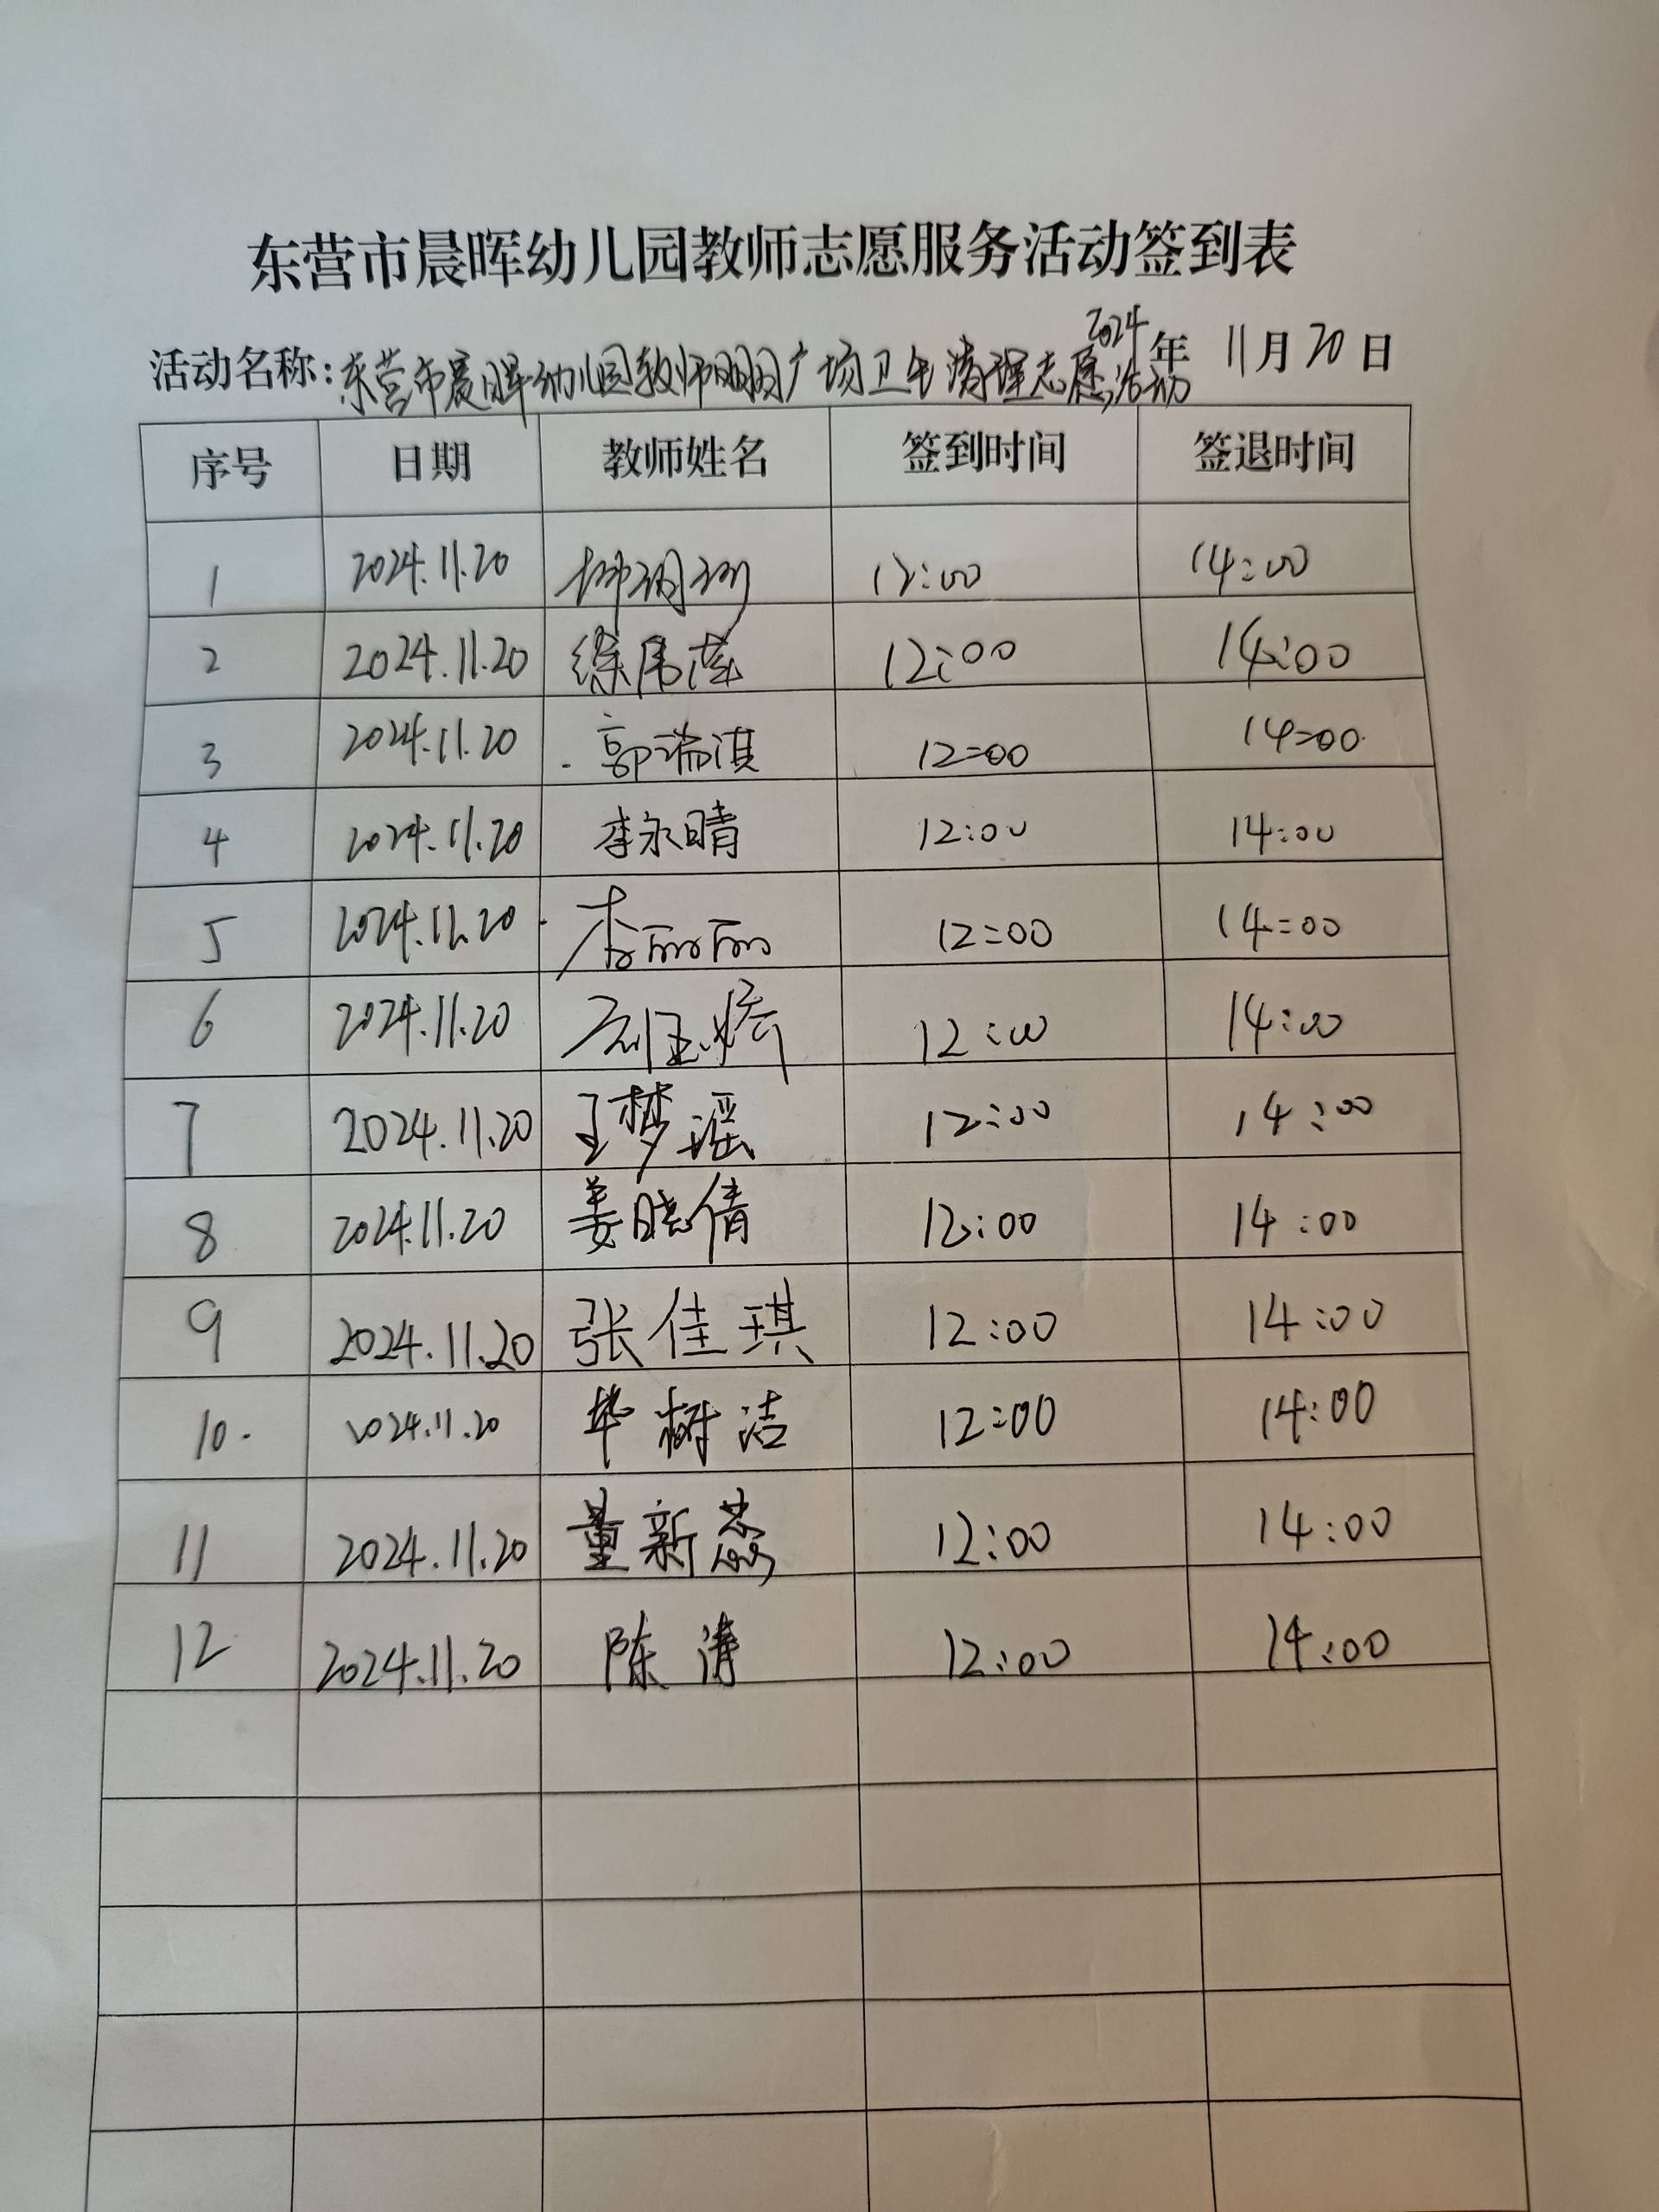 东营市晨晖幼儿园教师志愿服务活动签到表
活动名称:东营市晨晖幼儿园教师明月广场卫生清理志愿活动 2024年 11月20日
序号 日期 教师姓名 签到时间 签退时间
1 2024.11.20 12:00 14:00
2 2024.11.20 徐伟萍 12:00 14:00
3 2024.11.20 郭瑞淇 12:00 14:00
4 2024.11.20 李永晴 12:00 14:00
5 2024.11.20 李丽丽 12:00 14:00
6 2024.11.20 12:00 14:00
7 2024.11.20 王梦瑶 12:00 14:00
8 2024.11.20 姜晓倩 12:00 14:00
9 2024.11.20 张佳琪 12:00 14:00
10. 2024.11.20 毕树洁 12:00 14:00
11 2024.11.20 董新蕊 12:00 14:00
12 2024.11.20 陈涛 12:00 14:00